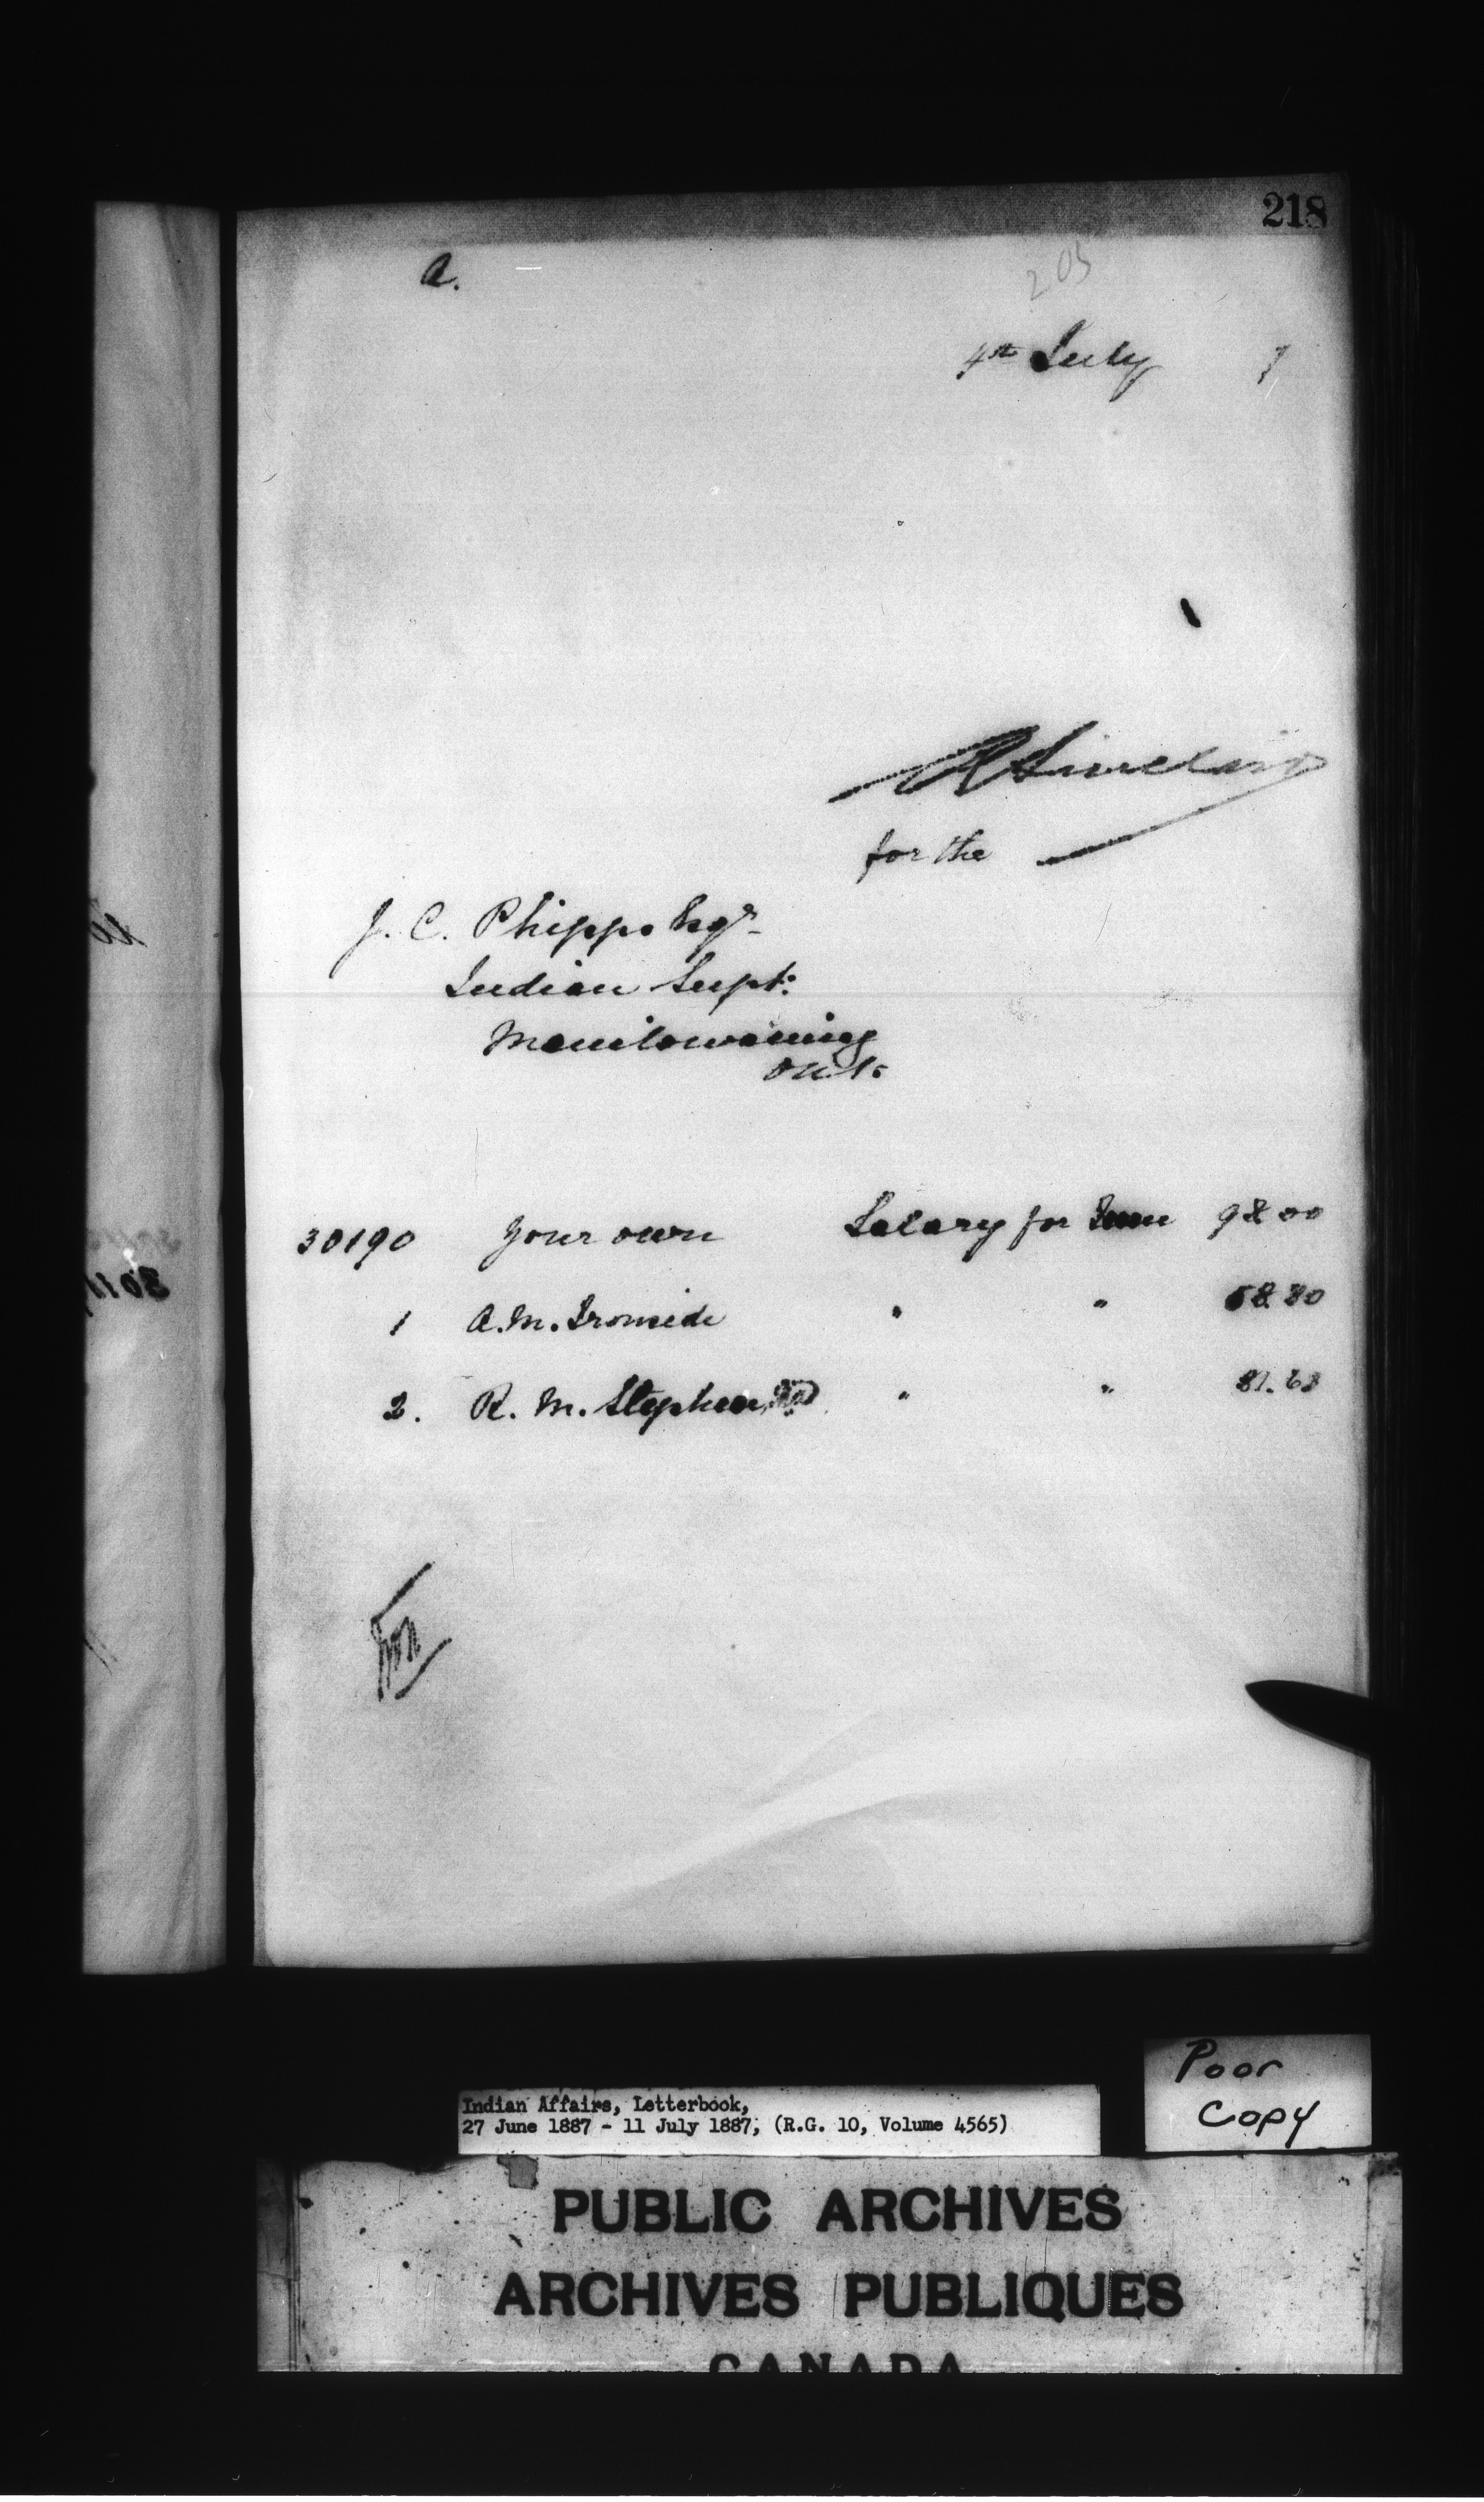 218
a.
205
4th July 7
R Sinclair
for the
J. C. Phipps Esqr
Indian Supt:
Manitowaning
Ont:
30190 Your own Salary for June 98 00
1 A. M. Ironside " " 58 80
2. R. M. Stephen " " 81.63
Indian Affairs, Letterbook,
27 June 1887 - 11 July 1887, (R.G. 10, Volume 4565)
Poor
Copy
PUBLIC ARCHIVES
ARCHIVES PUBLIQUES
CANADA